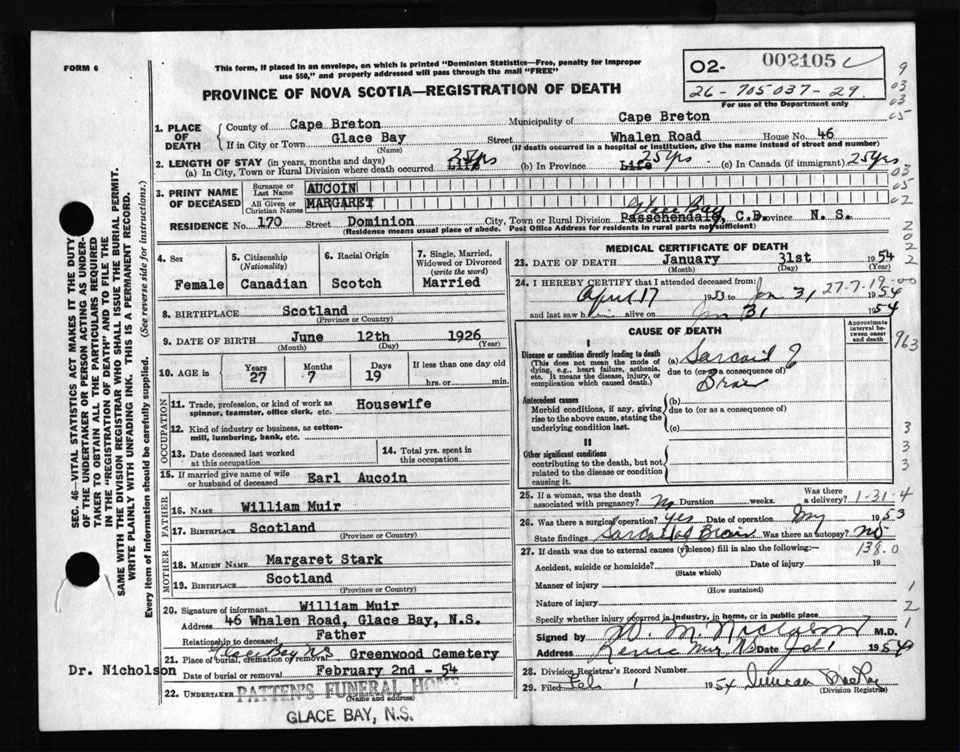 FORM 6
This form, if placed in an envelope, on which is printed "Dominion Statistics—Free, penalty for improper
use $50," and properly addressed will pass through the mail "FREE"
O2- 002105 C
26-705037-29.
For use of the Department only
PROVINCE OF NOVA SCOTIA—REGISTRATION OF DEATH
1. PLACE OF DEATH County of Cape Breton Municipality of Cape Breton
If in City or Town Glace Bay (Name) Street Whalen Road House No. 46
(If death occurred in a hospital or institution, give the name instead of street and number)
2. LENGTH OF STAY (in years, months and days)
(a) In City, Town or Rural Division where death occurred Life 25 yrs (b) In Province Life 25 yrs (c) In Canada (if immigrant) 25 yrs
3. PRINT NAME OF DECEASED Surname or Last Name AUCOIN
All Given or Christian Names MARGARET
RESIDENCE No. 170 Street Dominion City, Town or Rural Division Glace Bay Passchendale, C.B. Province N. S.
(Residence means usual place of abode. Post Office Address for residents in rural parts not sufficient)
4. Sex Female
5. Citizenship (Nationality) Canadian
6. Racial Origin Scotch
7. Single, Married, Widowed or Divorced (write the word) Married
8. BIRTHPLACE Scotland
(Province or Country)
9. DATE OF BIRTH June 12th 1926
(Month) (Day) (Year)
10. AGE in Years 27 Months 7 Days 19 If less than one day old
hrs. or min.
OCCUPATION
11. Trade, profession, or kind of work as spinner, teamster, office clerk, etc. Housewife
12. Kind of industry or business, as cotton-mill, lumbering, bank, etc.
13. Date deceased last worked at this occupation
14. Total yrs. spent in this occupation
15. If married give name of wife or husband of deceased Earl Aucoin
FATHER
16. NAME William Muir
17. BIRTHPLACE Scotland
(Province or Country)
MOTHER
18. MAIDEN NAME Margaret Stark
19. BIRTHPLACE Scotland
(Province or Country)
20. Signature of informant William Muir
Address 46 Whalen Road, Glace Bay, N.S.
Relationship to deceased Father
21. Place of burial, cremation or removal Glace Bay N.S. Greenwood Cemetery
Date of burial or removal February 2nd - 54
Dr. Nicholson
22. UNDERTAKER PATTEN'S FUNERAL HOME
(Name and address)
GLACE BAY, N.S.
MEDICAL CERTIFICATE OF DEATH
23. DATE OF DEATH January 31st 1954
(Month) (Day) (Year)
24. I HEREBY CERTIFY that I attended deceased from:
April 17 1953 to Jan 31 1954
27-7-19-00
and last saw h alive on Jan 31 1954
CAUSE OF DEATH
Approximate interval between onset and death
I
Disease or condition directly leading to death
(This does not mean the mode of dying, e.g., heart failure, asthenia, etc. It means the disease, injury, or complication which caused death.)
(a) Sarcoid of
due to (or as a consequence of)
Brain
963
Antecedent causes
Morbid conditions, if any, giving rise to the above cause, stating the underlying condition last.
(b)
due to (or as a consequence of)
(c)
II
Other significant conditions
contributing to the death, but not related to the disease or condition causing it.
25. If a woman, was the death associated with pregnancy? No Duration weeks. Was there a delivery? 1-31-4
26. Was there a surgical operation? Yes Date of operation May 1953
State findings Sarcoid of Brain Was there an autopsy? No
138.0
27. If death was due to external causes (violence) fill in also the following:—
Accident, suicide or homicide? Date of injury 19
(State which)
Manner of injury
(How sustained)
Nature of injury
Specify whether injury occurred in industry, in home, or in public place
Signed by M.D.
Address N.S. Date Feb 1 1954
28. Division Registrar's Record Number
29. Filed Feb 1 1954 Duncan
(Division Registrar)
9
03
03
05
03
05
02
2
0
2
2
3
3
3
1
2
1
SEC. 46—VITAL STATISTICS ACT MAKES IT THE DUTY
OF THE UNDERTAKER OR PERSON ACTING AS UNDER-
TAKER TO OBTAIN ALL THE PARTICULARS REQUIRED
IN THE "REGISTRATION OF DEATH" AND TO FILE THE
SAME WITH THE DIVISION REGISTRAR WHO SHALL ISSUE THE BURIAL PERMIT.
WRITE PLAINLY WITH UNFADING INK. THIS IS A PERMANENT RECORD.
Every item of information should be carefully supplied. (See reverse side for instructions.)